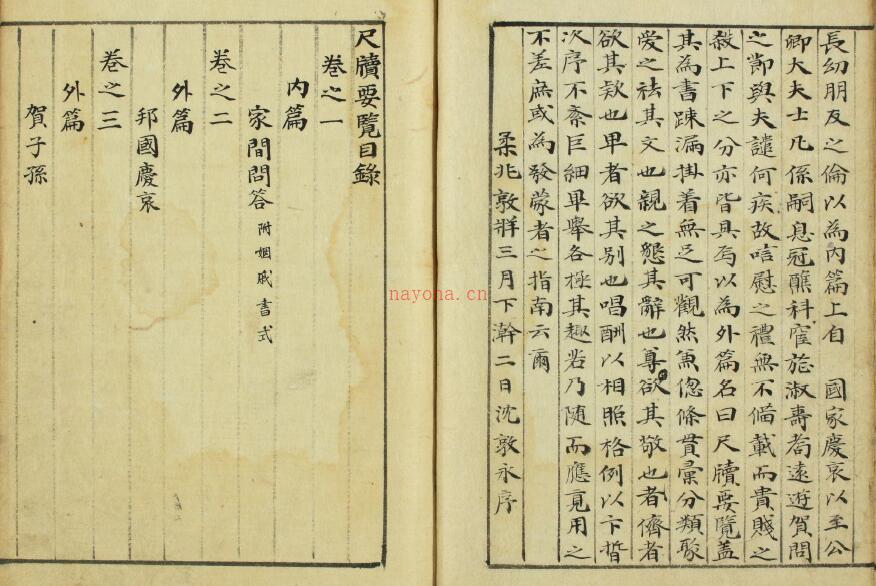 長幼朋友之倫以為內篇上自 國家慶哀以至公
卿大夫士凡係嗣息冠醮科宦旌淑壽耇遠遊賀問
之節與夫譴何疾故唁慰之禮無不備載而貴賤之
殺上下之分亦皆具焉以為外篇名曰尺牘要覽蓋
其為書踈漏掛着無足可觀然兼偬條貫彙分類聚
愛之祛其文也親之懇其辭也尊欲其敬也者儕者
欲其欵也卑者欲其別也唱酬以相照格例以卞晳
次序不紊巨細畢舉各極其趣若乃随而應竟用之
不差庶或為發蒙者之指南云爾
柔兆敦牂三月下澣二日沈敦永序
尺牘要覽目錄
卷之一
內篇
家間問答 附姻戚書式
卷之二
外篇
邦國慶哀
卷之三
外篇
賀子孫
nayona.cn